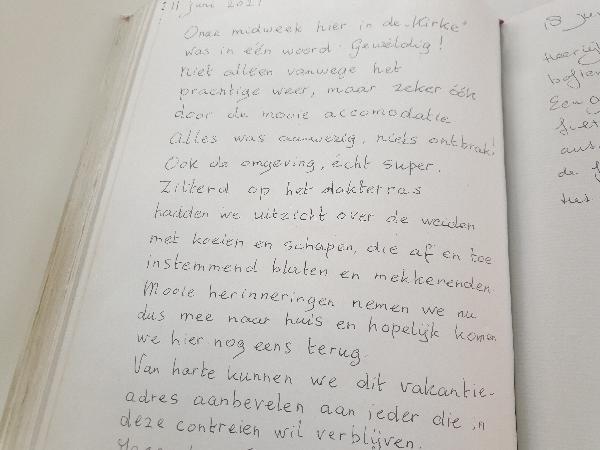 11 juni 2021
Onze midweek hier in de "Kirke"
was in één woord. Geweldig!
Niet alleen vanwege het
prachtige weer, maar zeker óók
door de mooie accomodatie
Alles was aanwezig, niets ontbrak!
Ook de omgeving, écht super.
Zittend op het dakterras
hadden we uitzicht over de weiden
met koeien en schapen, die af en toe
instemmend blaten en mekkerenden.
Mooie herinneringen nemen we nu
dus mee naar huis en hopelijk komen
we hier nog eens terug.
Van harte kunnen we dit vakantie-
adres aanbevelen aan ieder die in
deze contreien wil verblijven.
15
Een
de